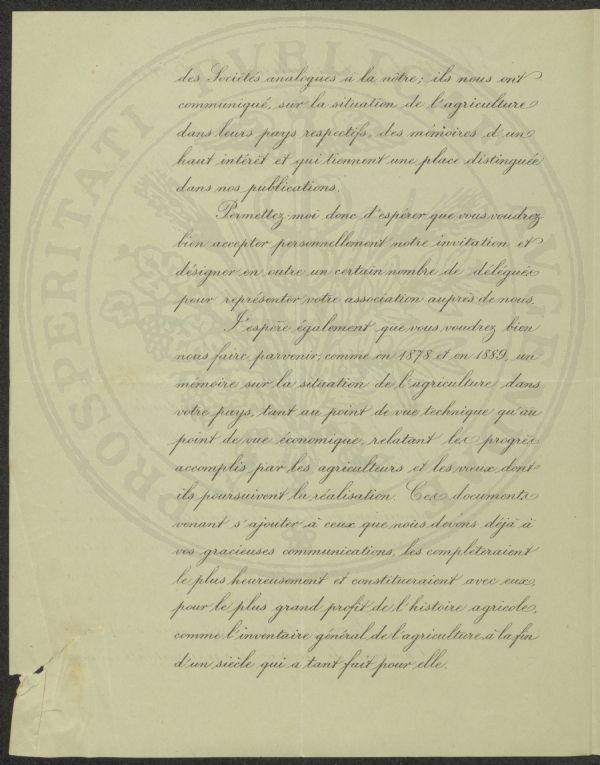 des Sociétés analogues à la nôtre; ils nous ont
communiqué, sur la situation de l'agriculture
dans leurs pays respectifs, des mémoires d'un
haut intérêt et qui tiennent une place distinguée
dans nos publications.
Permettez-moi donc d'espérer que vous voudrez
bien accepter personnellement notre invitation et
désigner en outre un certain nombre de délégués
pour représenter votre association auprès de nous.
J'espère également que vous voudrez bien
nous faire parvenir, comme en 1878 et en 1889, un
mémoire sur la situation de l'agriculture dans
votre pays, tant au point de vue technique qu'au
point de vue économique, relatant les progrès
accomplis par les agriculteurs et les vœux dont
ils poursuivent la réalisation. Ces documents
venant s'ajouter à ceux que nous devons déjà à
vos gracieuses communications, les compléteraient
le plus heureusement et constitueraient avec eux,
pour le plus grand profit de l'histoire agricole,
comme l'inventaire général de l'agriculture à la fin
d'un siècle qui a tant fait pour elle.
PROSPERITATI PVBLICÆ